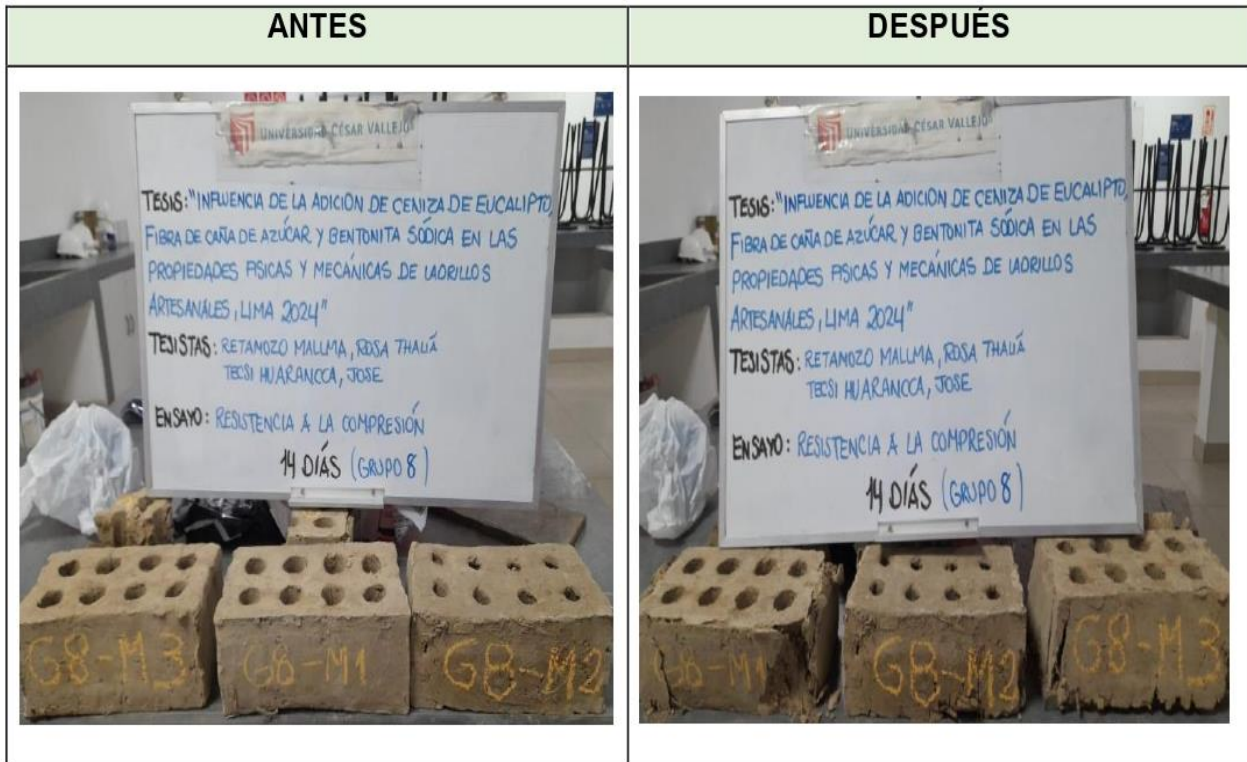 ANTES
DESPUÉS
UNIVERSIDAD CÉSAR VALLEJO
TESIS: "INFLUENCIA DE LA ADICIÓN DE CENIZA DE EUCALIPTO,
FIBRA DE CAÑA DE AZÚCAR Y BENTONITA SÓDICA EN LAS
PROPIEDADES FISICAS Y MECÁNICAS DE LADRILLOS
ARTESANALES, LIMA 2024"
TESISTAS: RETAMOZO MALLMA, ROSA THALIÁ
TECSI HUARANCCA, JOSE
ENSAYO: RESISTENCIA A LA COMPRESIÓN
14 DÍAS (GRUPO 8)
G8-M3
G8-M1
G8-M2
UNIVERSIDAD CÉSAR VALLEJO
TESIS: "INFLUENCIA DE LA ADICIÓN DE CENIZA DE EUCALIPTO,
FIBRA DE CAÑA DE AZÚCAR Y BENTONITA SÓDICA EN LAS
PROPIEDADES FISICAS Y MECÁNICAS DE LADRILLOS
ARTESANALES, LIMA 2024"
TESISTAS: RETAMOZO MALLMA, ROSA THALIÁ
TECSI HUARANCCA, JOSE
ENSAYO: RESISTENCIA A LA COMPRESIÓN
14 DÍAS (GRUPO 8)
G8-M1
G8-M2
G8-M3